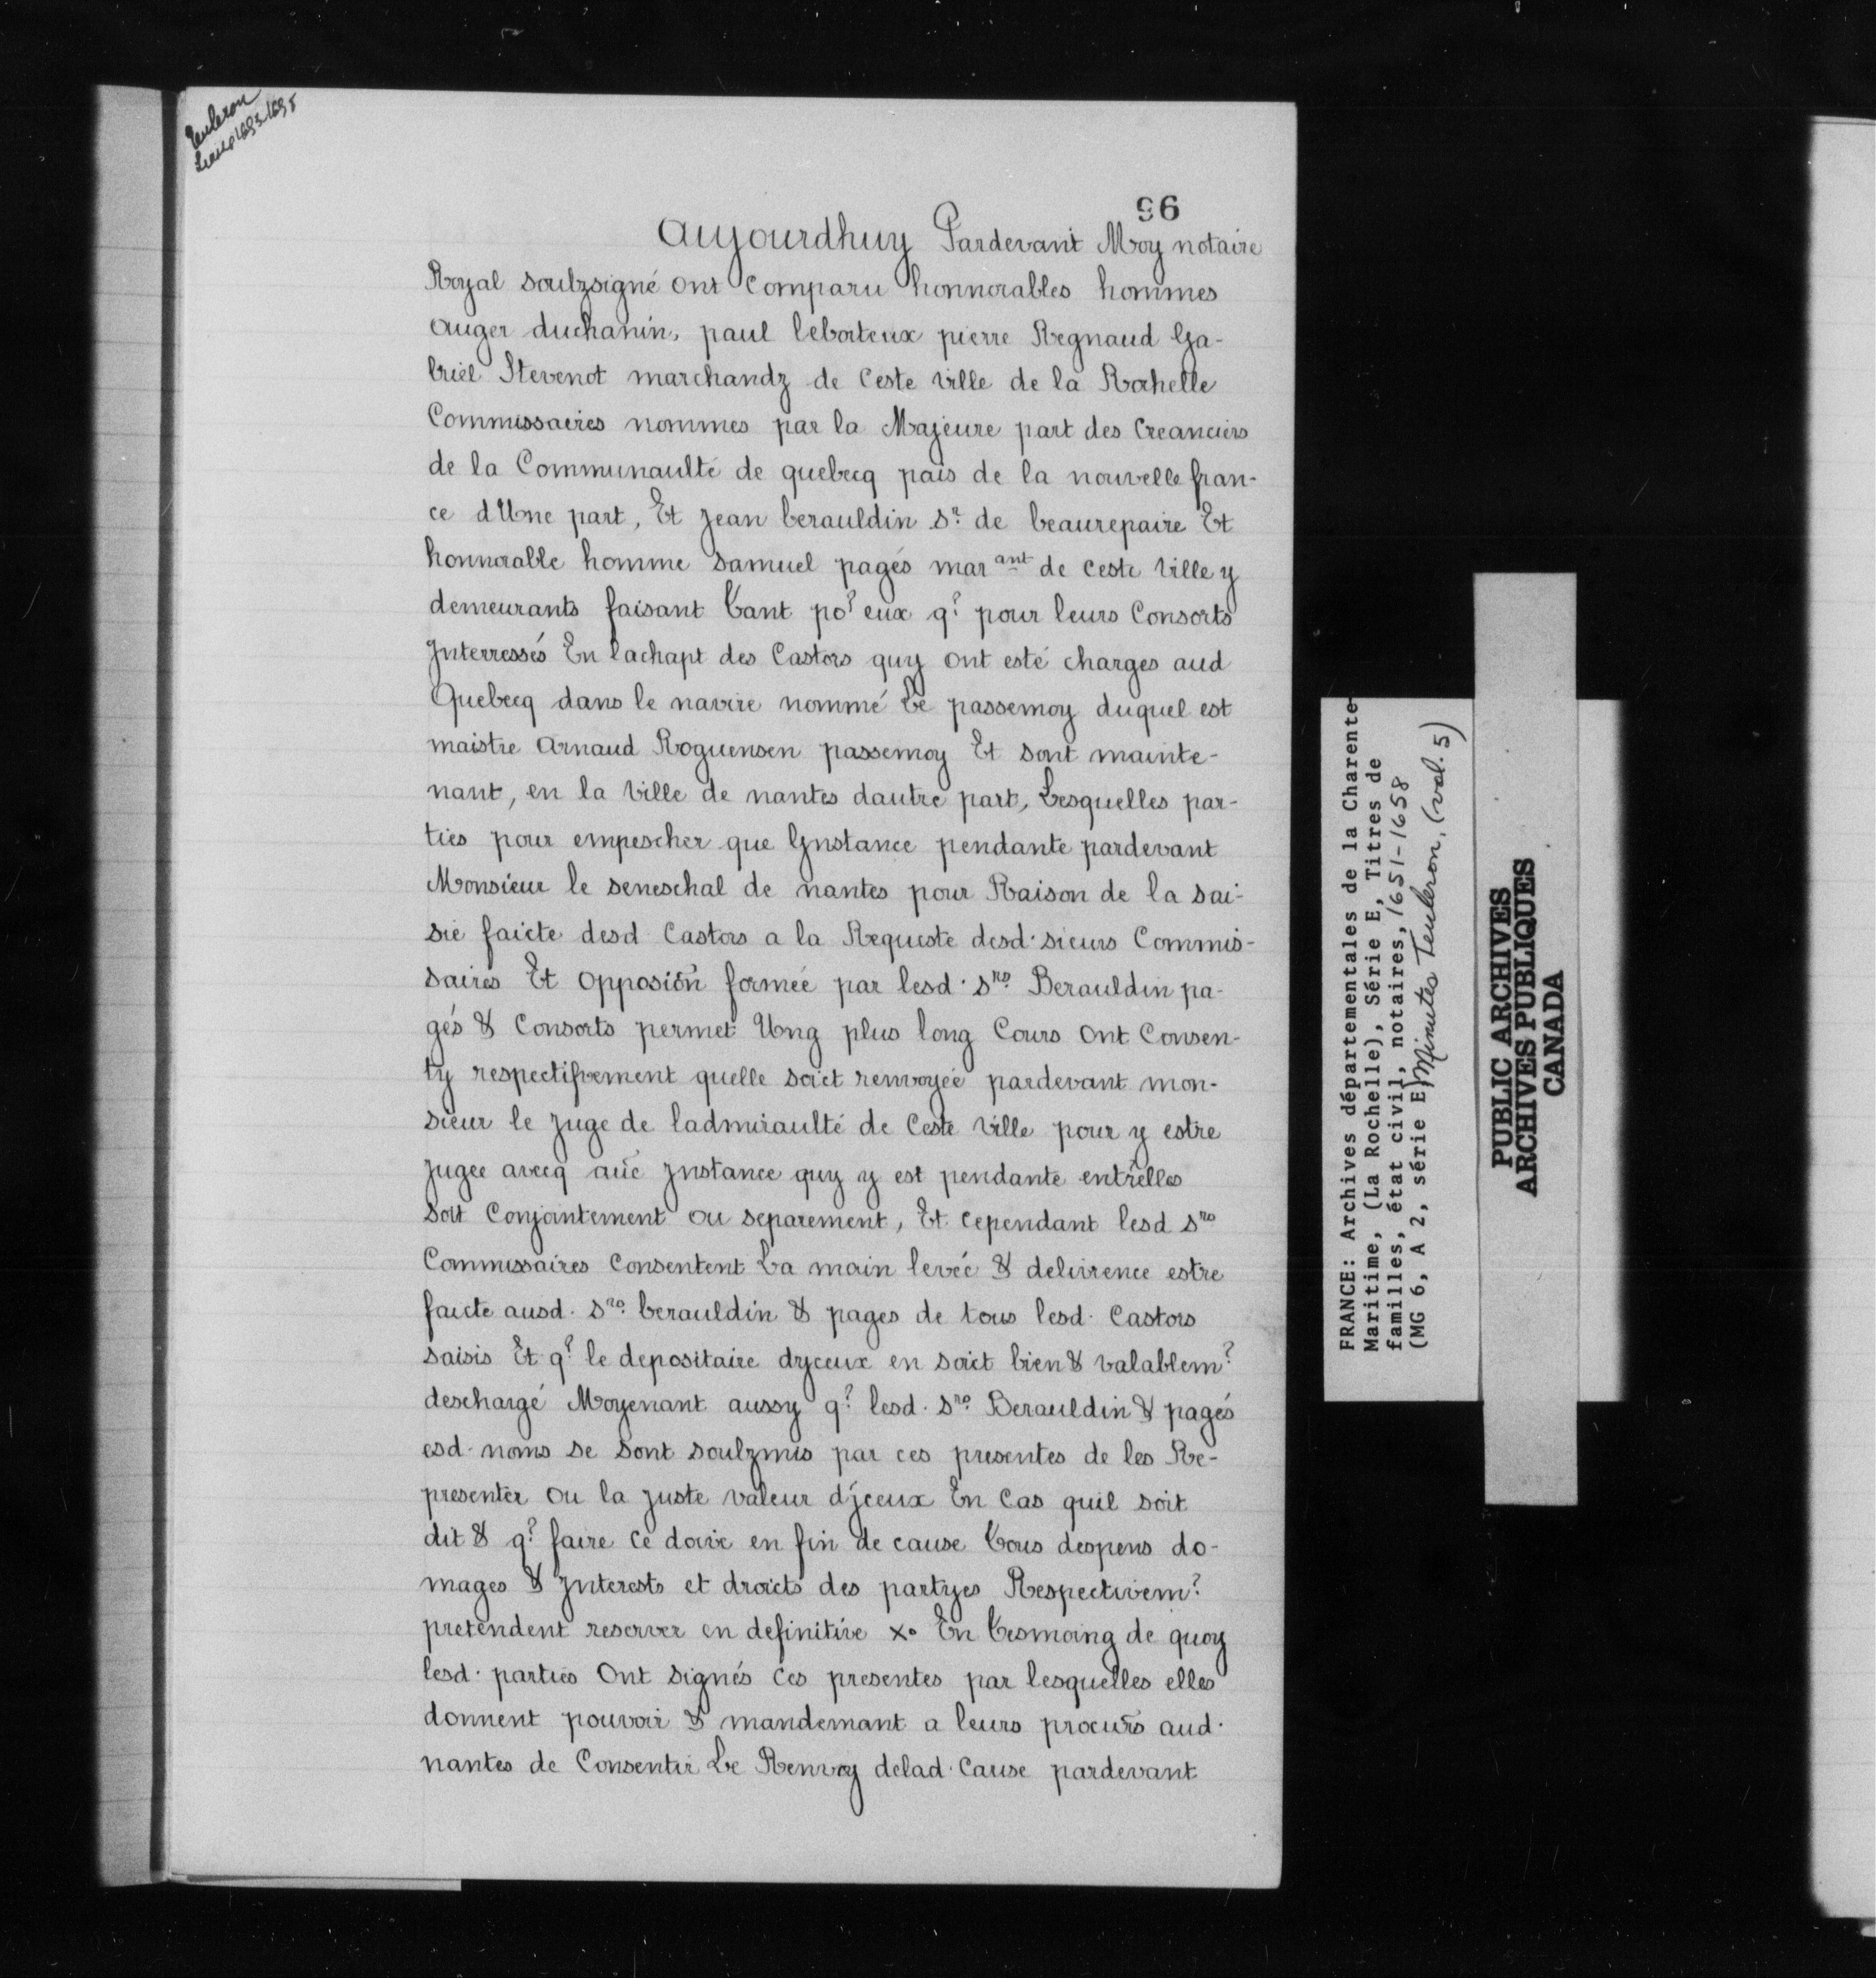 Teuleron
96
Aujourdhuy Pardevant Moy notaire
Royal soulzsigné ont Comparu honnorables hommes
Auger duchanin, paul leboiteux pierre Regnaud Ga-
briel Stevenot marchandz de Ceste Ville de la Rochelle
Commissaires nommes par la Majeure part des Creanciers
de la Communaulté de quebecq païs de la nouvelle fran-
ce d'Une part, Et Jean berauldin Sr. de beaurepaire Et
honnorable homme Samuel pagés mar ant de Ceste Ville y
demeurants faisant tant po? eux q? pour leurs Consorts
Jnterressés En lachapt des Castors quy ont esté charges aud
Quebecq dans le navire nommé Le passemoy duquel est
maistre Arnaud Roguensen passemoy Et sont mainte-
nant, en la Ville de nantes dautre part, Lesquelles par-
ties pour empescher que Lynstance pendante pardevant
Monsieur le seneschal de nantes pour Raison de la sai-
sie faicte desd Castors a la Requeste desd. sieurs Commis-
saires Et opposiõn formée par lesd. Srs. Berauldin pa-
gés & Consorts permet Ung plus long Cours ont Consen-
ty respectifvement quelle soict renvoyée pardevant mon-
sieur le Juge de ladmiraulté de Ceste Ville pour y estre
Jugee avecq aũe Jnstance quy y est pendante entrelles
soit Conjointement ou separement, Et cependant lesd Srs
Commissaires Consentent La main levée & delivrence estre
faicte ausd. Srs. berauldin & pages de tous lesd. Castors
saisis Et q? le depositaire dyceux en soict bien & valablem?
deschargé Moyenant aussy q? lesd. Srs. Berauldin & pagés
esd. noms se sont soulzmis par ces presentes de les Re-
presenter ou la Juste valeur d'jceux En Cas quil soit
dit & q? faire ce doive en fin de cause tous despens do-
mages & Jnterests et droicts des partyes Respectivem?
pretendent reserver en definitive x. En tesmoing de quoy
lesd. parties Ont signés ces presentes par lesquelles elles
donnent pouvoir & mandemant a leurs procurs aud.
nantes de Consentir Le Renvoy delad. Cause pardevant
FRANCE: Archives départementales de la Charente-
Maritime, (La Rochelle), Série E, Titres de
familles, état civil, notaires, 1651-1658
(MG 6, A 2, série E) Minutes Teuleron, (vol. 5)
PUBLIC ARCHIVES
ARCHIVES PUBLIQUES
CANADA